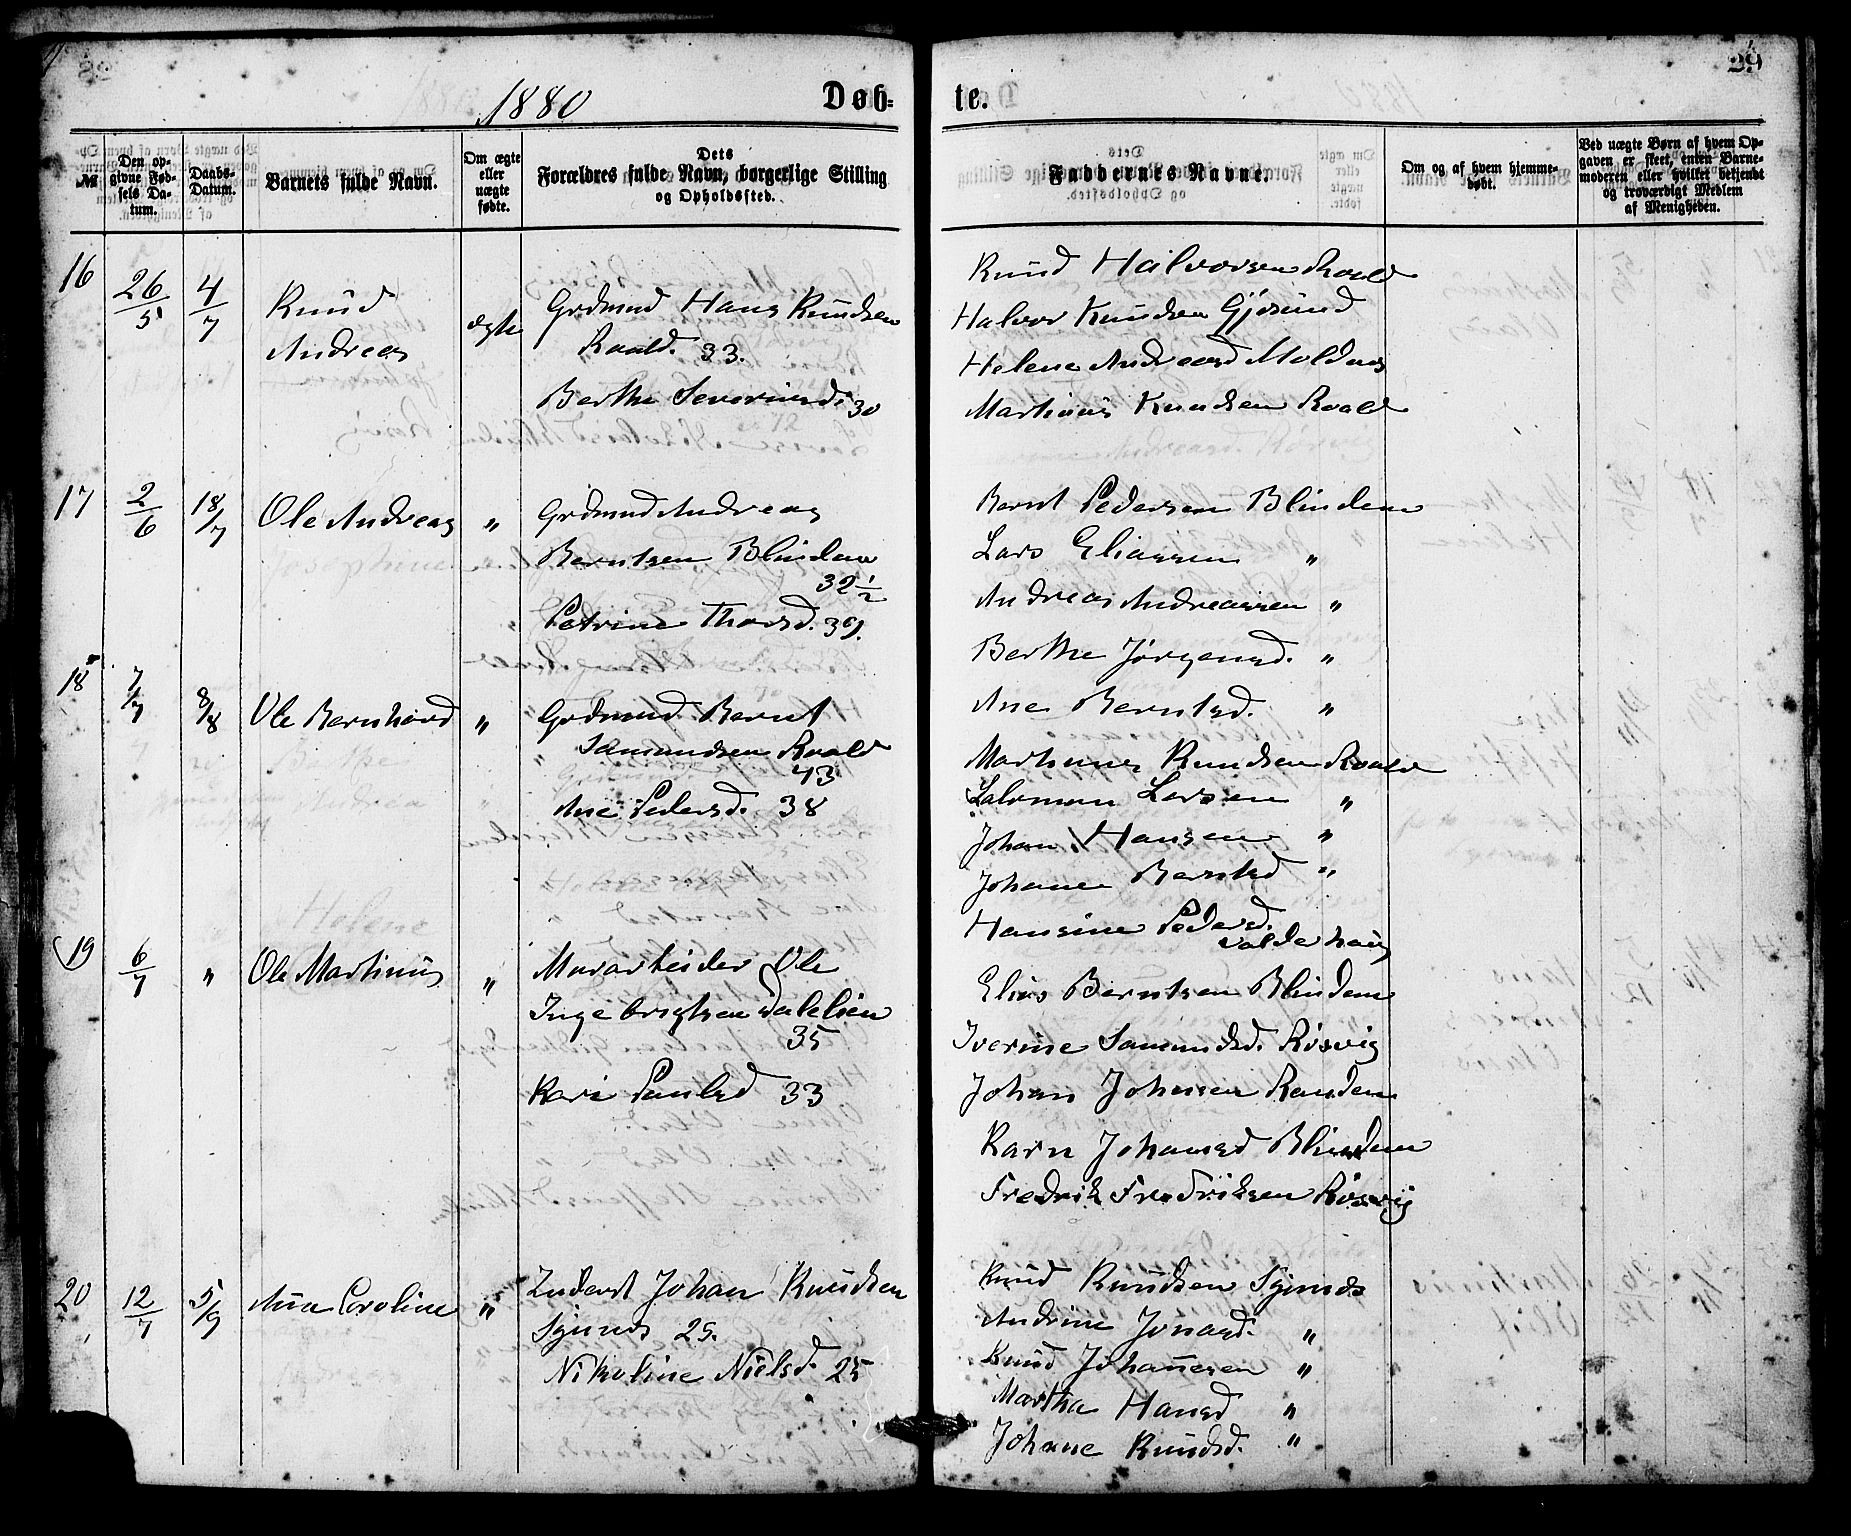 29
1880
Døb- te.
№
Den opgivne Fødsels Datum.
Daabs-Datum.
Barnets fulde Navn.
Om ægte eller uægte fødte.
Dets Forældres fulde Navn, borgerlige Stilling og Opholdssted.
Faddernes Navne.
Om og af hvem hjemmedøbt.
Ved uægte Børn af hvem Opgaven er skeet, enten Barnemoderen eller hvilket bekjendt og troværdigt Medlem af Menigheden.
16
26/5
4/7
Knud
Andreas
ægte
Grdmnd Hans Knudsen
Roald. 33.
Berthe Severinsd. 30
Knud Halvorsen Roald
Halvor Knudsen Gjøsund
Helene Andreasd Moldnes
Martinus Knudsen Roald
17
2/6
18/7
Ole Andreas
"
Grdmnd Andreas
Berntsen Blindem
32 1/2
Petrine Thorsd. 39.
Bernt Pedersen Blindem
Lars Eliassen "
Andreas Andreassen "
Berthe Jørgensd. "
Ane Berntsd. "
18
7/7
8/8
Ole Bernhard
"
Grdmnd Bernt
Samundsen Roald
43
Ane Pedersd. 38
Martinus Knudsen Roald
Salomon Larsen "
Johan Hansen "
Johane Berntsd "
Hansine Pedersd.
Valderhaug
19
6/7
"
Ole Martinus
"
Murarbeider Ole
Ingebrigtsen Dalelien
35
Kari Paulsd 33
Elias Berntsen Blindem
Iverine Samundsd. Røsvig
Johan Johnsen Randem
Karn Johansd Blindem
Fredrik Fredriksen Røsvig
20
12/7
5/9
Ana Caroline
"
Inderst Johan Knudsen
Synnes 25.
Nikoline Nielsd. 25
Knud Knudsen Synnes
Andrine Jonasd. "
Knud Johannesen "
Martha Hansd "
Johane Knudsd. "